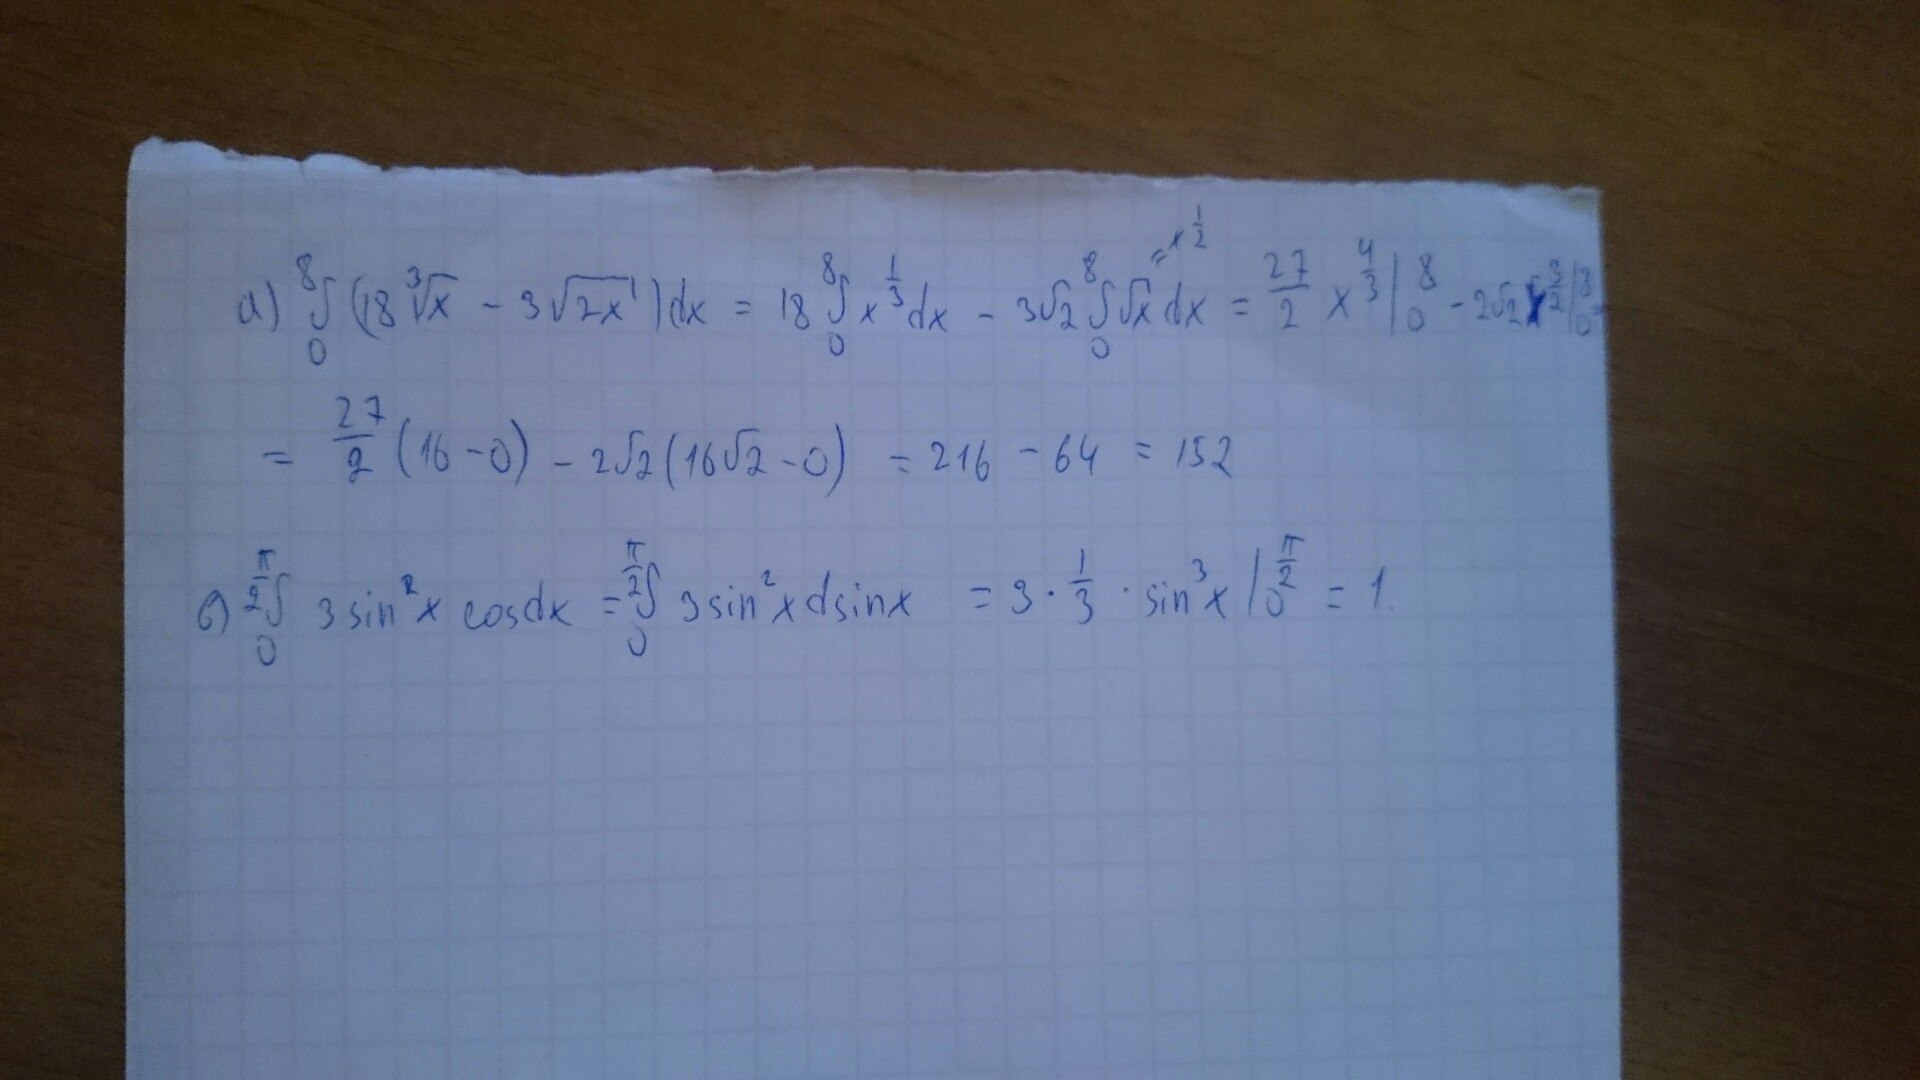 а) ⁸∫₀ (18 ∛x − 3√(2x)) dx = 18 ⁸∫₀ x^(1/3) dx − 3√2 ⁸∫₀ √x dx = 27/2 x^(4/3) |₀⁸ − 2√2 x^(3/2) |₀⁸ =
= x^(1/2)
= 27/2 (16 − 0) − 2√2 (16√2 − 0) = 216 − 64 = 152
б) ^(π/2)∫₀ 3 sin²x cosdx = ^(π/2)∫₀ 3 sin²x dsinx = 3 · 1/3 · sin³x |₀^(π/2) = 1.